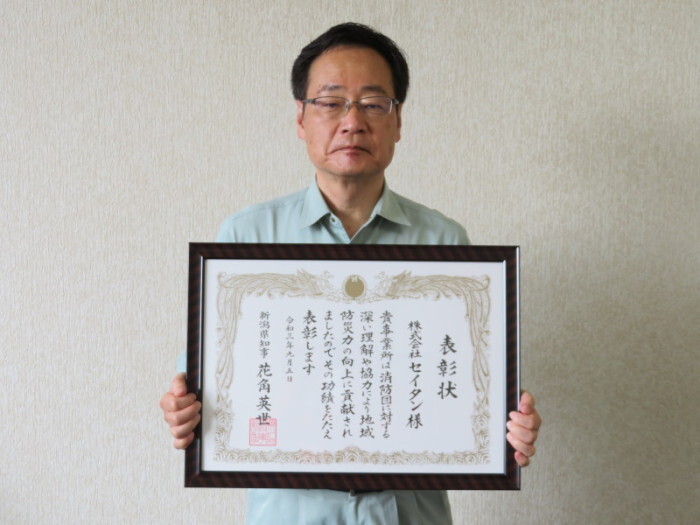 表彰状
株式会社セイタン様
貴事業所は消防団に対する
深い理解や協力により地域
防災力の向上に貢献され
ましたのでその功績をたたえ
表彰します
令和三年九月五日
新潟県知事 花角英世